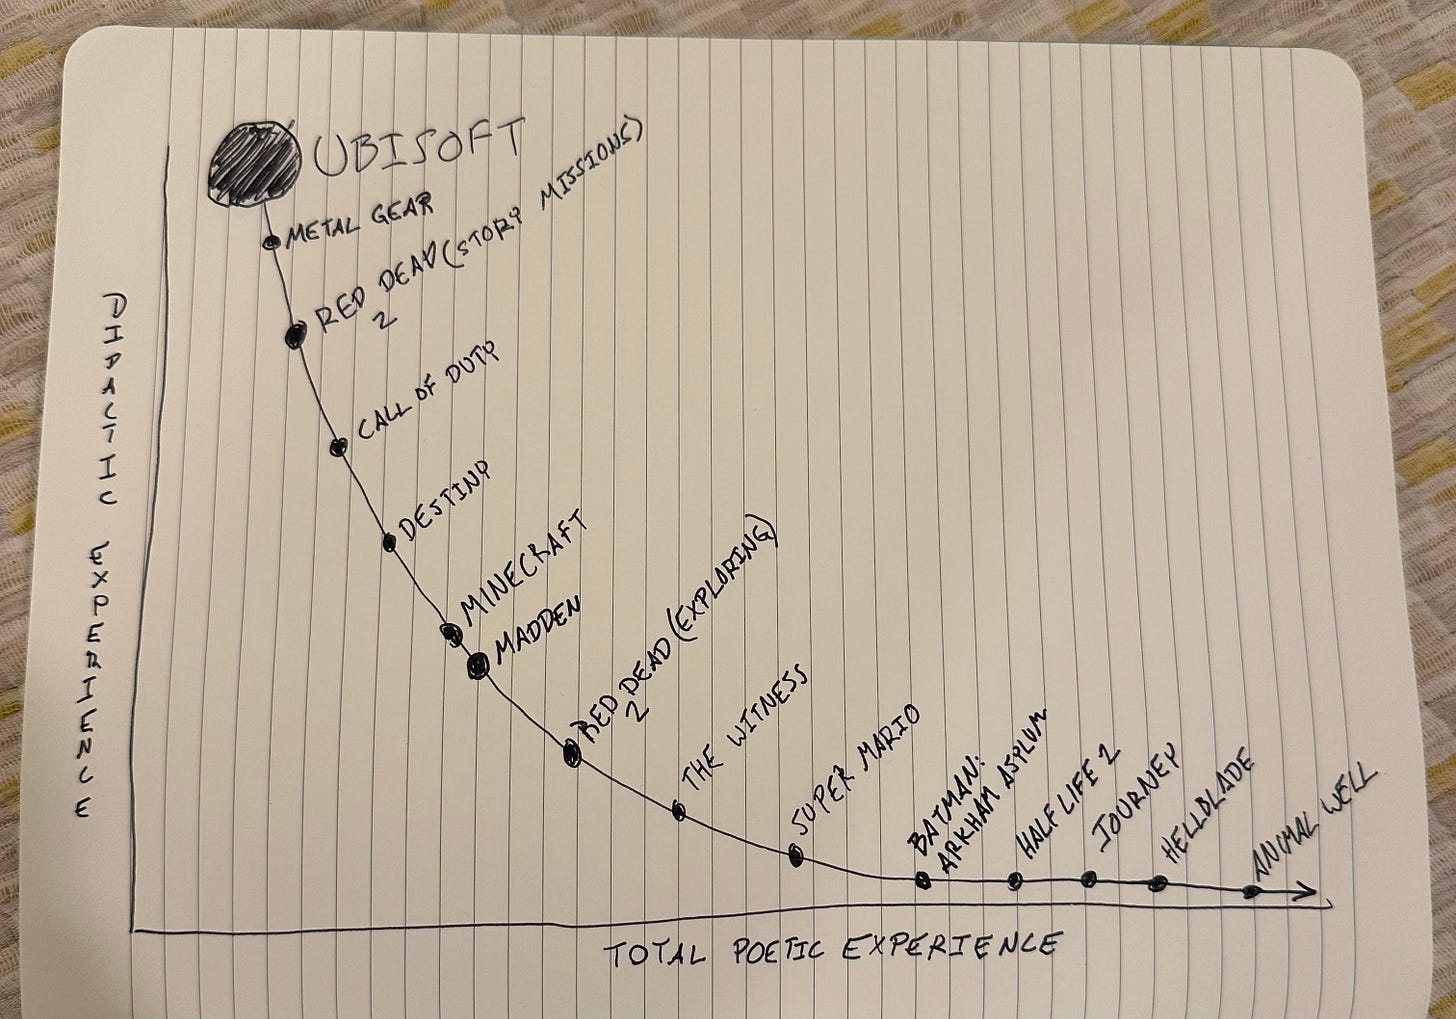 UBISOFT
METAL GEAR
RED DEAD (STORY MISSIONS)
2
CALL OF DUTY
DESTINY
MINECRAFT
MADDEN
RED DEAD (EXPLORING)
2
THE WITNESS
SUPER MARIO
BATMAN:
ARKHAM ASYLUM
HALF LIFE 2
JOURNEY
HELLBLADE
ANIMAL WELL
DIDACTIC EXPERIENCE
TOTAL POETIC EXPERIENCE